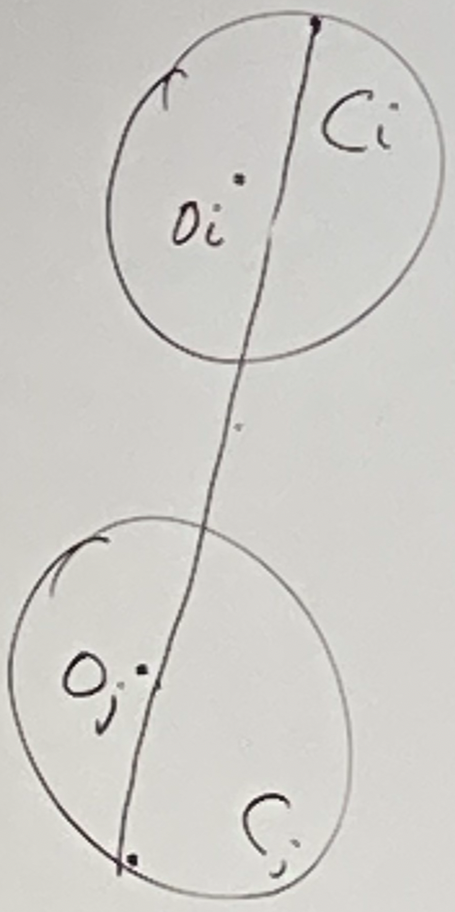 Ci
Oi
Oj
Cj